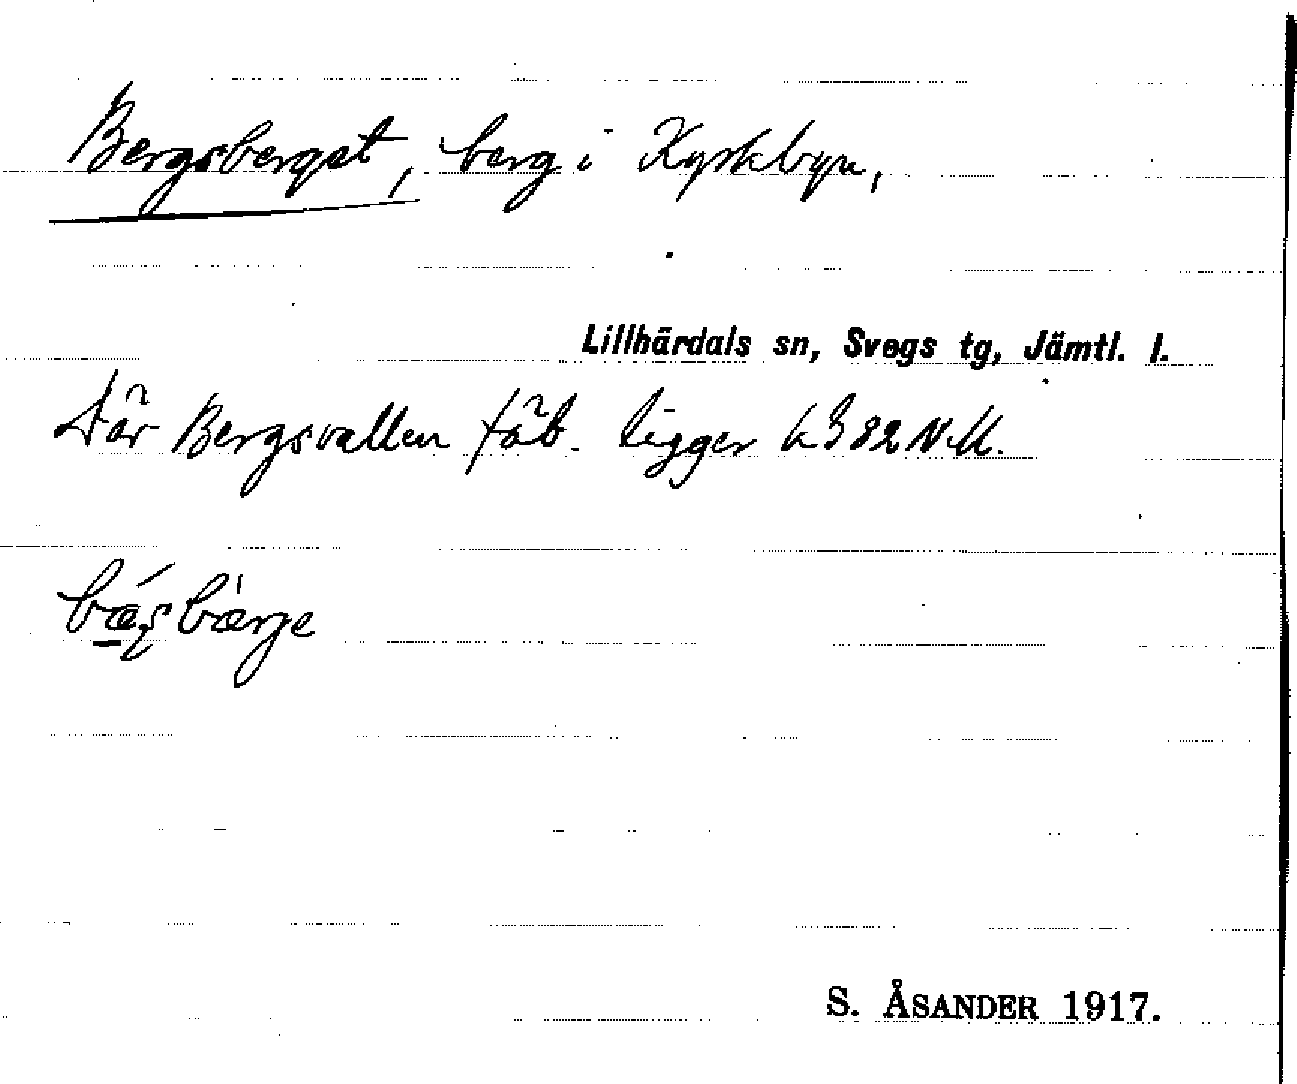 Bergsberget, berg i Kyrkbyn,
Lillhärdals sn, Svegs tg, Jämtl. l.
Där Bergsvallen fäb. ligger 82 N.M.
bærje
S. ÅSANDER 1917.